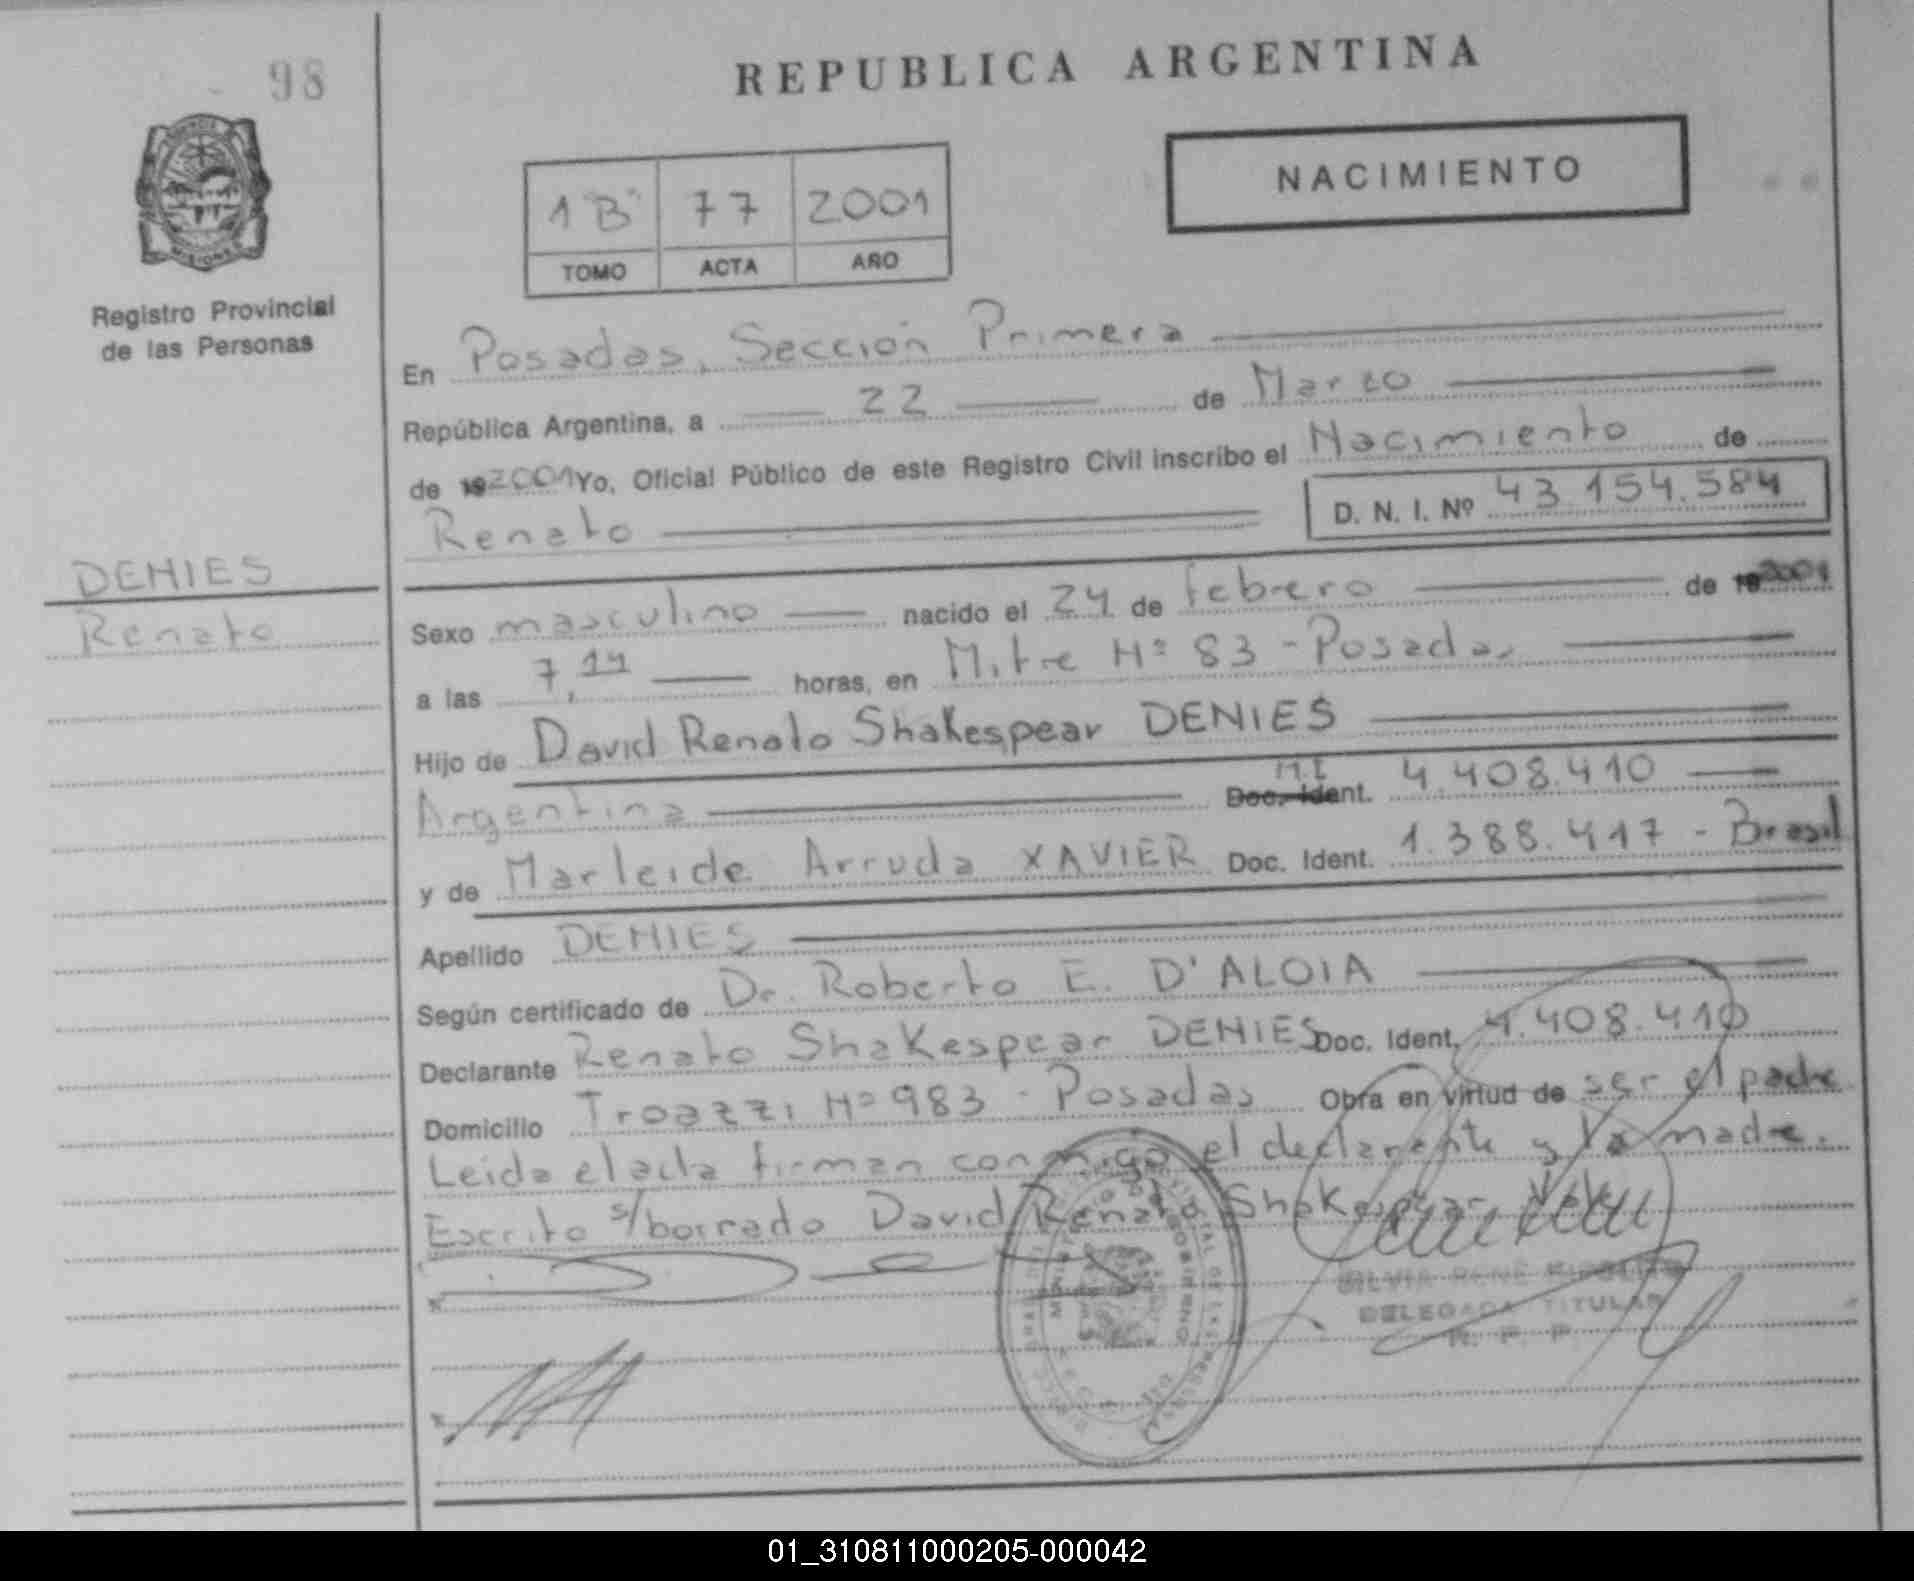 98
REPUBLICA ARGENTINA
NACIMIENTO
1 "B" 77 2001
TOMO ACTA AÑO
MISIONES
Registro Provincial
de las Personas
En Posadas, Sección Primera
República Argentina, a 22 de Marzo
de 192001 Yo, Oficial Público de este Registro Civil inscribo el Nacimiento de
Renato D. N. I. Nº 43.154.584
DENIES
Renato
Sexo masculino nacido el 24 de febrero de 192001
a las 7,14 horas, en Mitre Nº 83 - Posadas
Hijo de David Renato Shakespear DENIES
Argentina M.I Doc. Ident. 4.408.410
y de Marleide Arruda XAVIER Doc. Ident. 1.388.417 - Brasil
Apellido DENIES
Según certificado de Dr. Roberto E. D'ALOIA
Declarante Renato Shakespear DENIES Doc. Ident. 4.408.410
Domicilio Troazzi Nº 983 - Posadas Obra en virtud de ser el padre
Leida el acta firman conmigo el declarante y la madre.
Escrito s/borrado David Renato Shakespear Vale
SILVIA RENE
DELEGADA TITULAR
R. P. P.
01_310811000205-000042